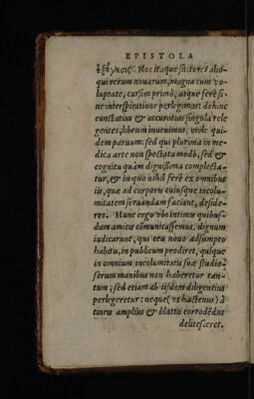 EPISTOLA
ἐξήγησις. Nos itaque scitores alio-
qui rerum nouarum, magna cum vo-
luptate, cursim primò, atque ferè si-
ne interspiratione perlegimus: dehinc
cunctatius & accuratius singula rele
gentes, librum inuenimus, mole qui-
dem paruum: sed qui plurima in me-
dica arte non spectatu modò, sed &
cognitu quàm dignissima complecta-
tur, & in quo nihil ferè ex omnibus
iis, quæ ad corporis cuiusque incolu-
mitatem seruandam faciant, deside-
res. Hunc ergo vbi intimis quibus-
dam amicis cōmunicassemus, dignum
iudicarunt, qui ceu nouo adsumpto
habitu, in publicum prodiret, quique
in omnium incolumitatis suæ studio-
sorum manibus non haberetur tan-
tum, sed etiam ab iisdem diligentius
perlegeretur: neque (vt hactenus) à
tineis amplius & blattis corrodēdus
delitesceret.